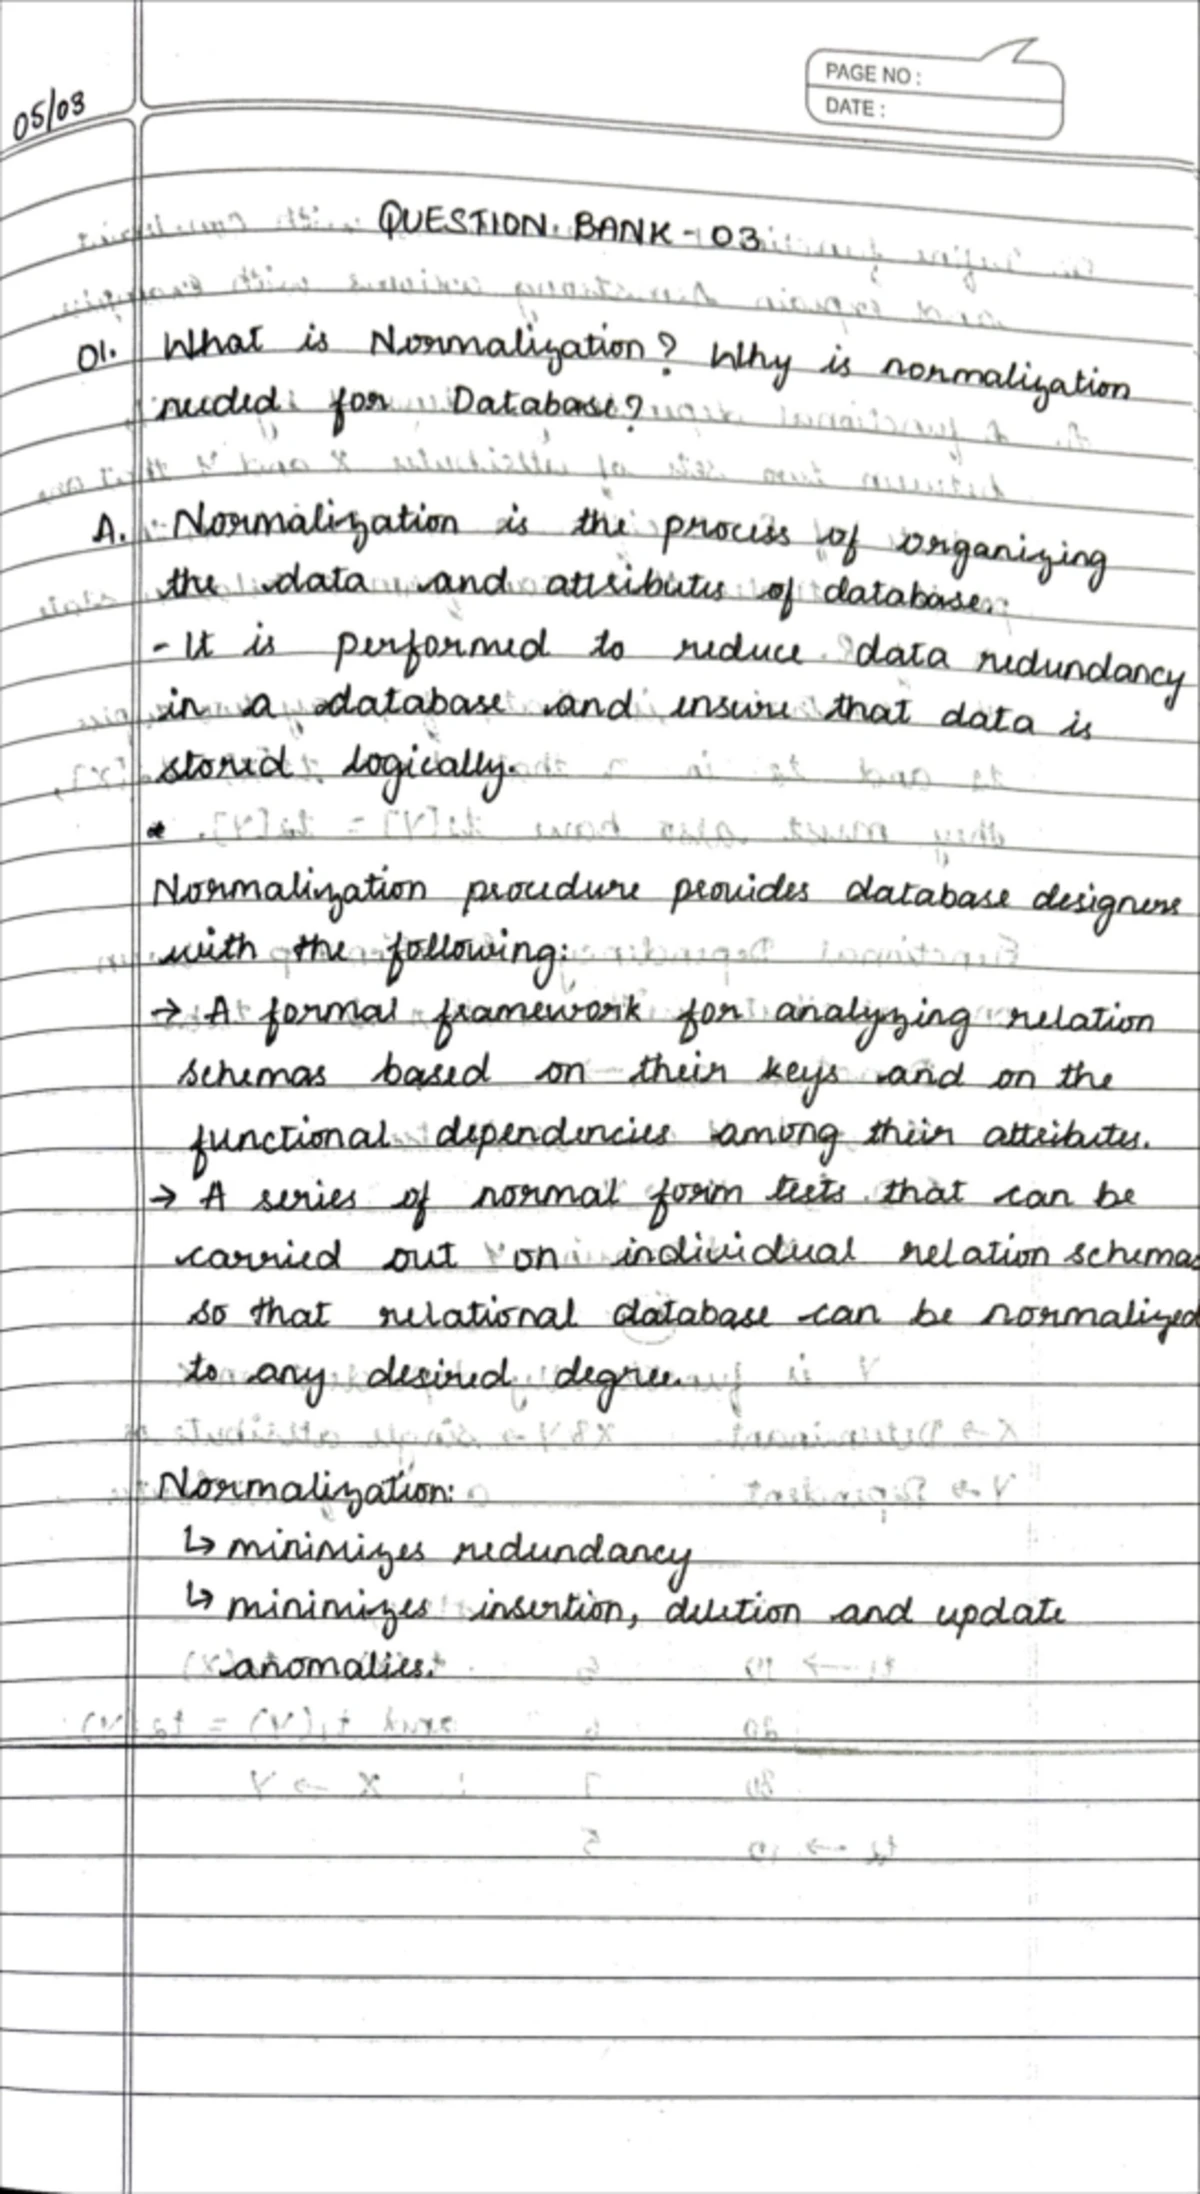 PAGE NO :
DATE :
05/03
QUESTION BANK - 03
01. What is Normalization? Why is normalization
needed for Database?
A. - Normalization is the process of organizing
the data and attributes of database.
- It is performed to reduce data redundancy
in a database and ensure that data is
stored logically.
Normalization procedure provides database designers
with the following:
→ A formal framework for analyzing relation
schemas based on their keys and on the
functional dependencies among their attributes.
→ A series of normal form tests that can be
carried out on individual relation schemas
so that relational database can be normalized
to any desired degree.
Normalization:
↳ minimizes redundancy
↳ minimizes insertion, deletion and update
anomalies.